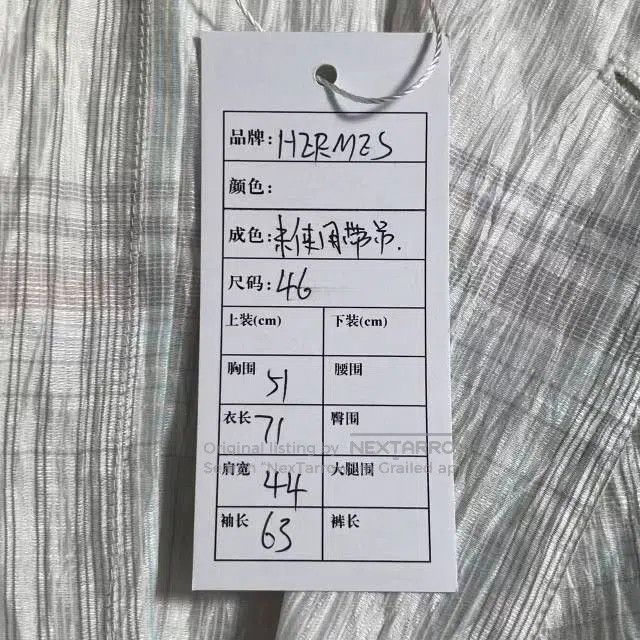 品牌: HERMES
颜色:
成色: 未使用带吊.
尺码: 46
上装(cm) 下装(cm)
胸围 51 腰围
衣长 71 臀围
Original listing by NEXTARRO
肩宽 44 大腿围
袖长 63 裤长